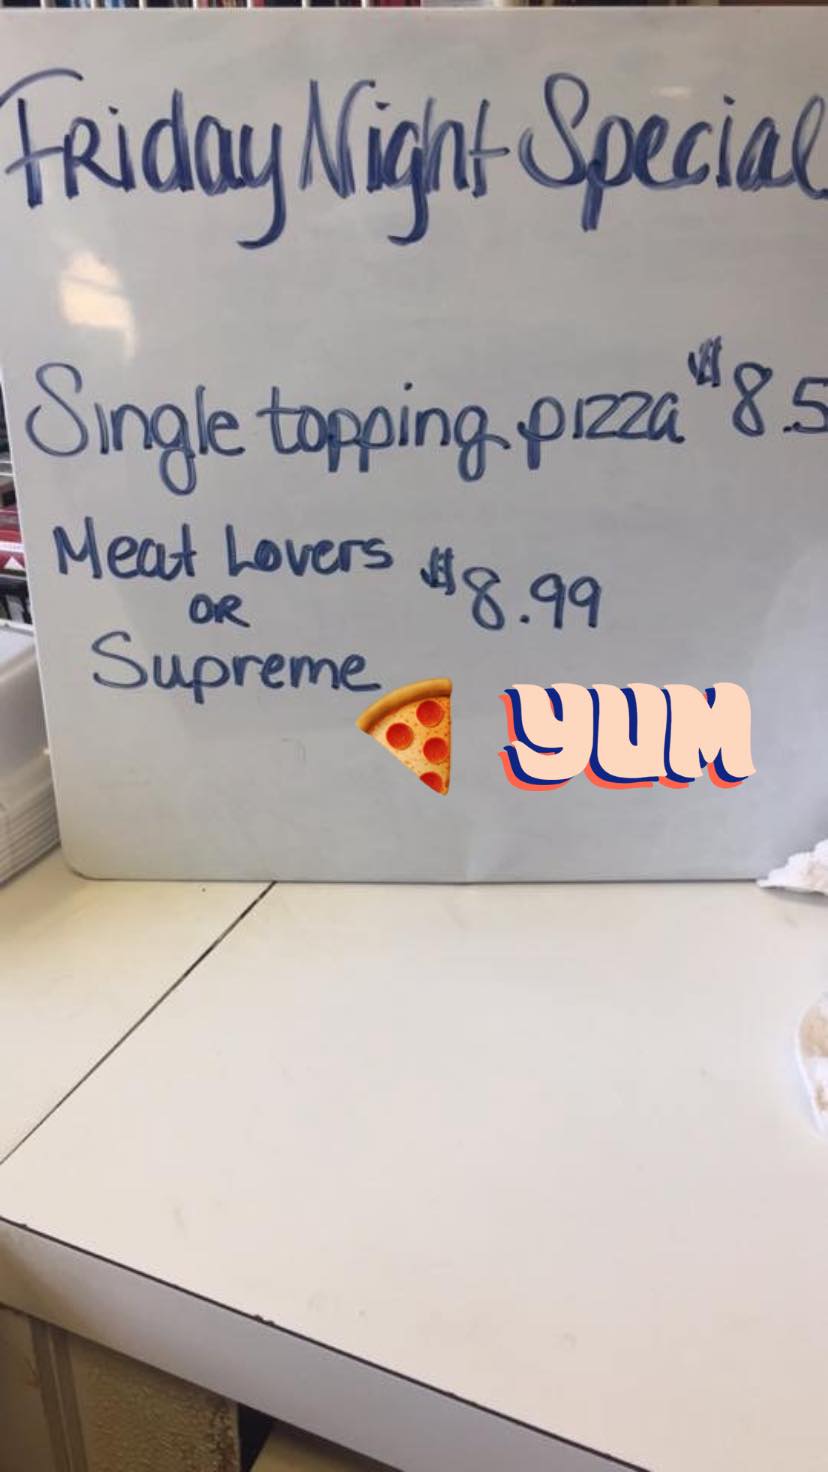 Friday Night Special
Single topping pizza $8.5
Meat Lovers
OR
$8.99
Supreme
YUM